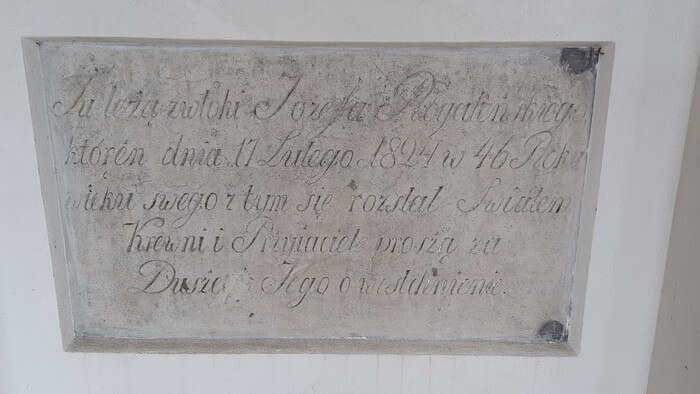 Tu leżą zwłoki Jozefa Rogalińskiego
któren dnia 17 Lutego 1824 w 46 Roku
wieku swego z tym się rozstał Swiatem
Krewni i Przyiaciele proszą za
Duszę Jego o westchnienie.